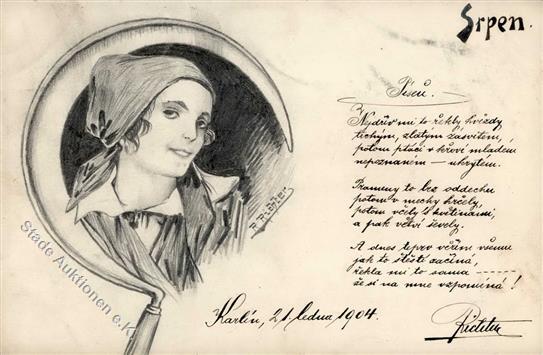 Srpen.
Píseň.
Nejdřív mi to řekly hvězdy
tichým, zlatým zásvitem,
potom ptáci v křoví mladém
nepoznaném – ukrytém.
Prameny to bez oddechu
potom v mechy hrčely,
potom včely s květinami,
a pak větví ševely.
A dnes teprv věřím všemu
jak to štěstí začíná,
řekla mi to sama -----
že si na mne vzpomíná!
Karlín, 21. ledna 1904.
Richter
R. Richter
Stade Auktionen e.K.